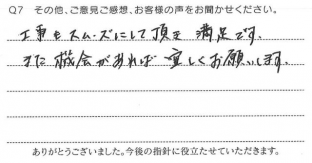 Q7 その他、ご意見ご感想、お客様の声をお聞かせください。
工事もスムーズにして頂き 満足です。
また 機会があれば 宜しくお願いします。
ありがとうございました。今後の指針に役立たせていただきます。